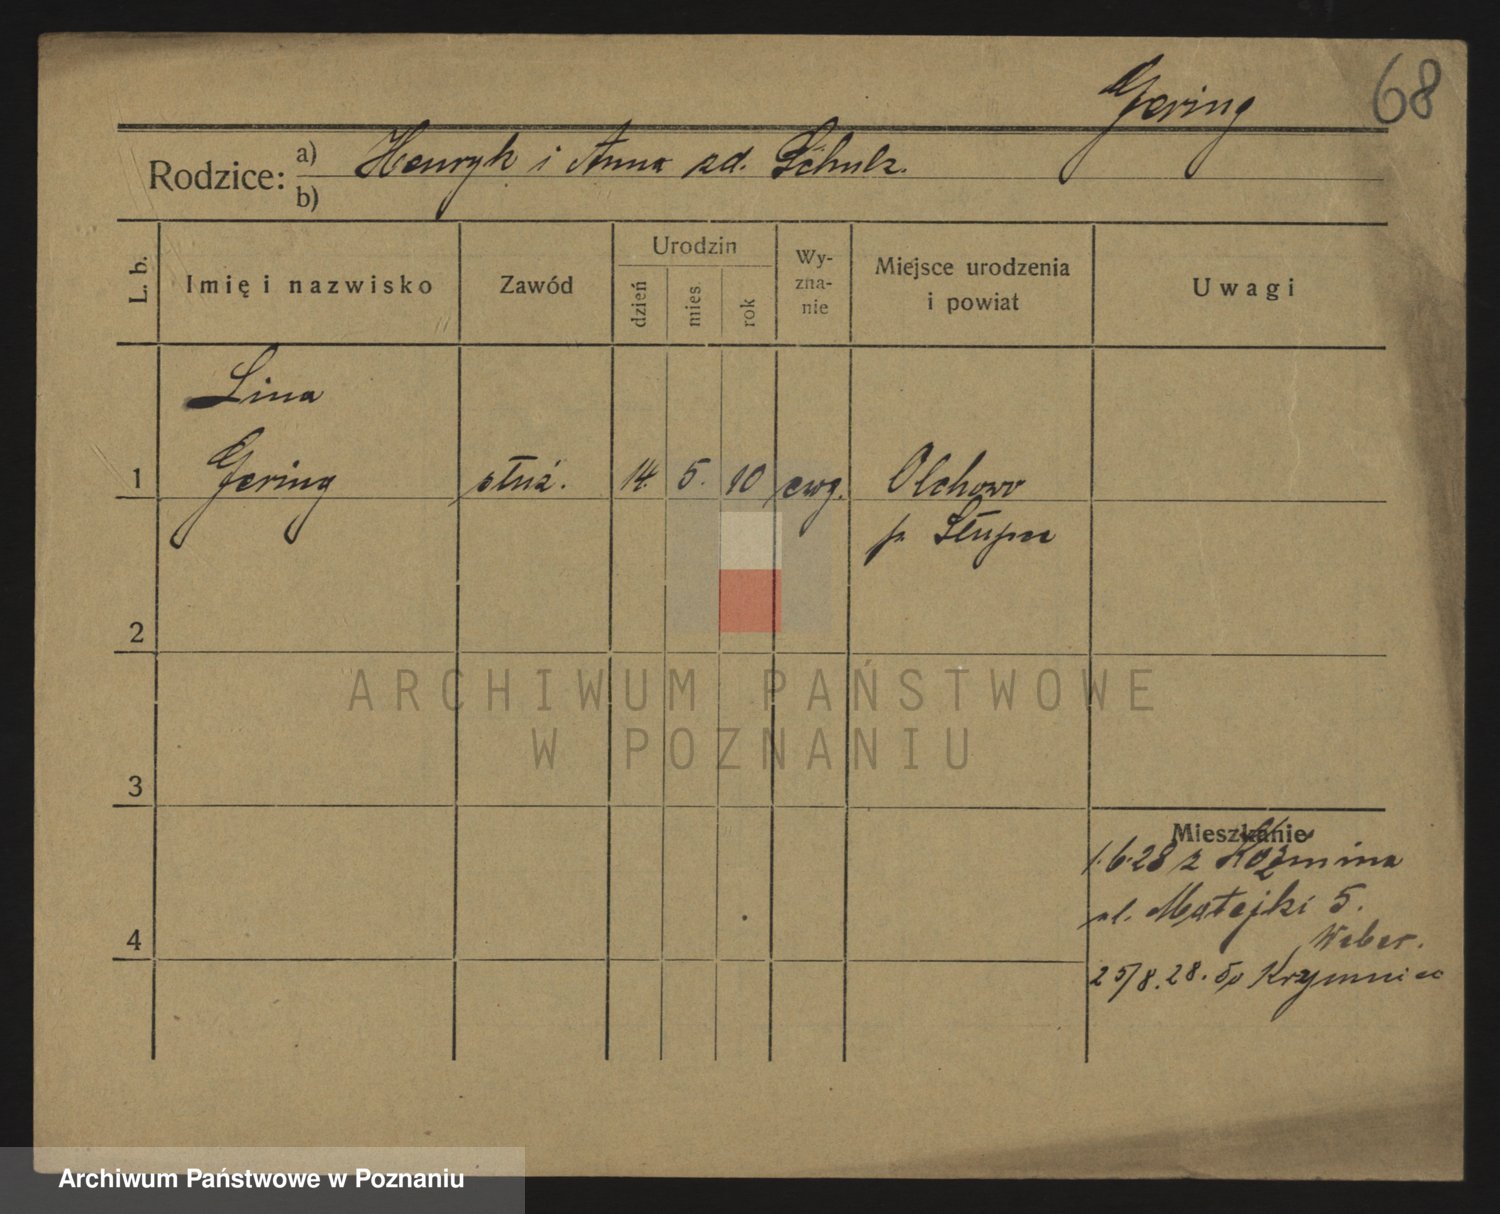 Gering 68
Rodzice: a) Henryk i Anna zd. Schulz.
b)
L. b. Imię i nazwisko Zawód Urodzin dzień mies. rok Wy-zna-nie Miejsce urodzenia i powiat Uwagi
Lina
1 Gering służ. 14. 5. 10 ewg. Olchowo
p. Słupca
2
ARCHIWUM PAŃSTWOWE
W POZNANIU
3
Mieszkanie
1.6.28 z Koźmina
ul. Matejki 5.
Weber.
4
25/8.28. do
Archiwum Państwowe w Poznaniu